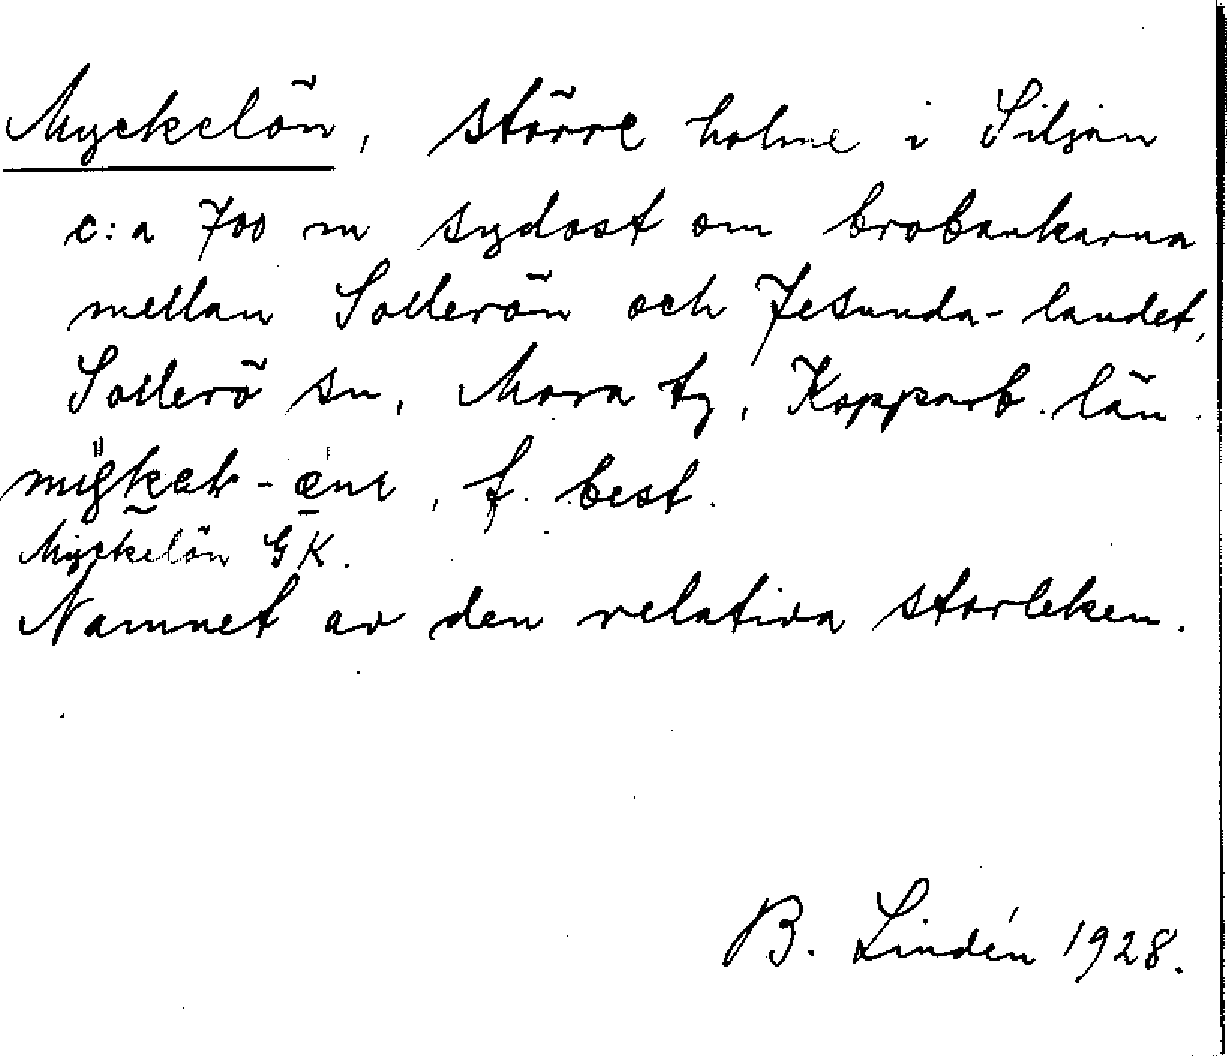 Myckelön, större holme i Siljan
c:a 700 m sydost om brobankarna
mellan Sollerön och Jesunda-landet,
Sollerö sn, Mora tg, Kopparb. län.
f. best.
Myckelön GK.
Namnet av den relativa storleken.
B. Lindén 1928.